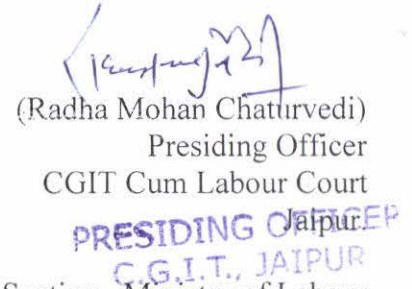 (Radha Mohan Chaturvedi)
Presiding Officer
CGIT Cum Labour Court
Jaipur.
PRESIDING OFFICER
C.G.I.T., JAIPUR
Section, Ministry of Labour